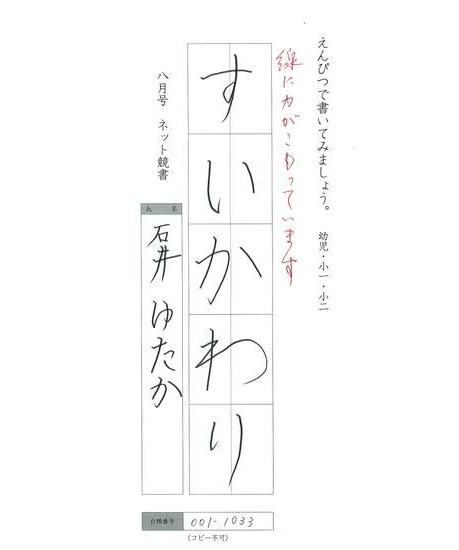 えんぴつで書いてみましょう。　幼児・小一・小二
線に力がこもっています
すいかわり
八月号　ネット競書
氏名
石井ゆたか
台帳番号 001-1033
(コピー不可)